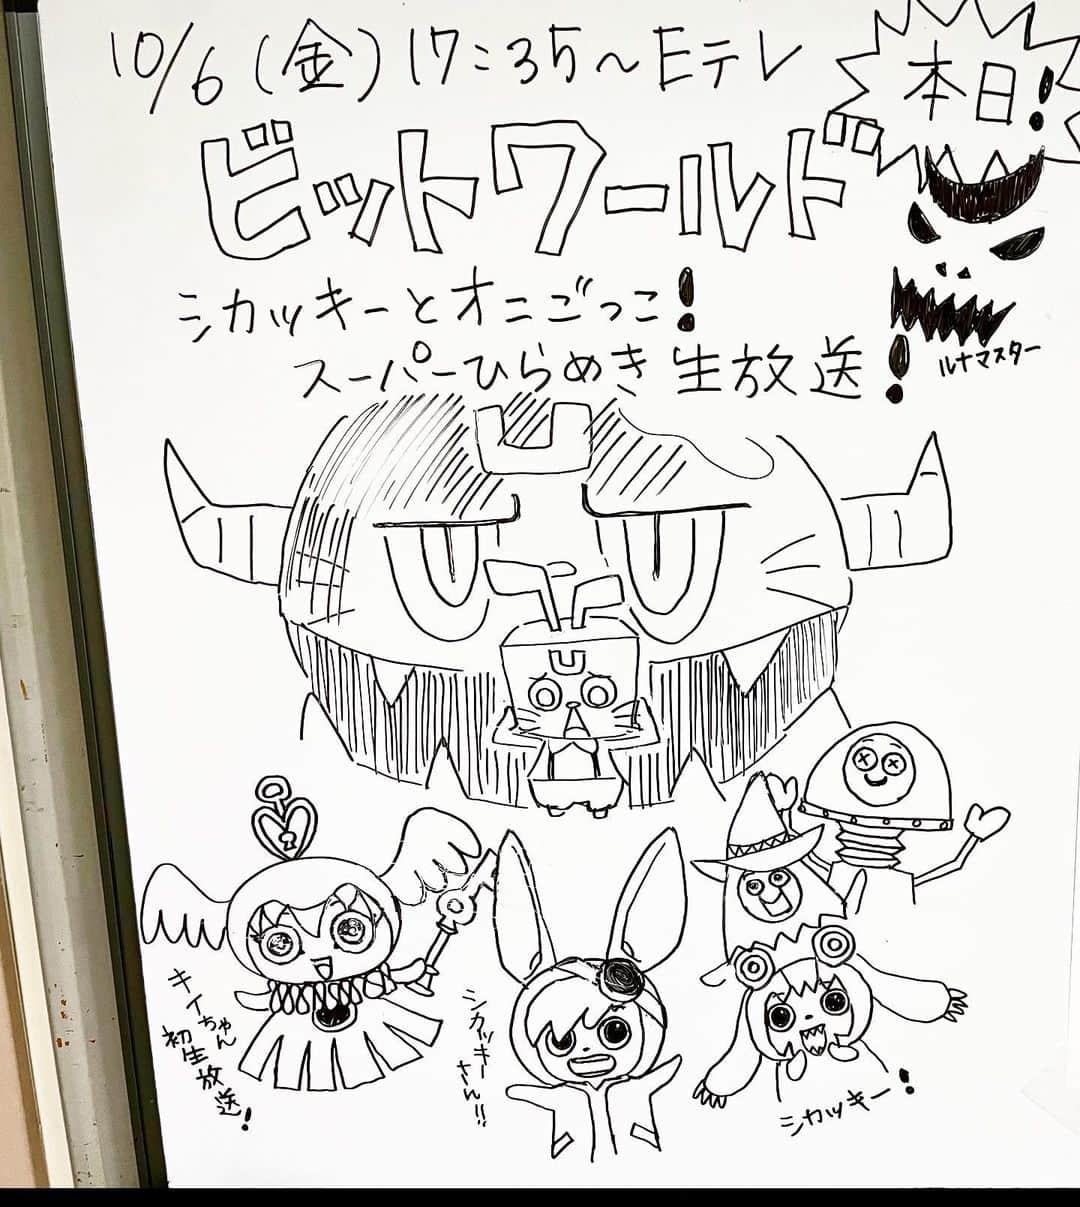 10/6(金)17:35〜Eテレ
本日!
ビットワールド
シカッキーとオニごっこ!
スーパーひらめき生放送!
ルナマスター
U
U
キイちゃん
初生放送!
シカッキー
さん!!
シカッキー!